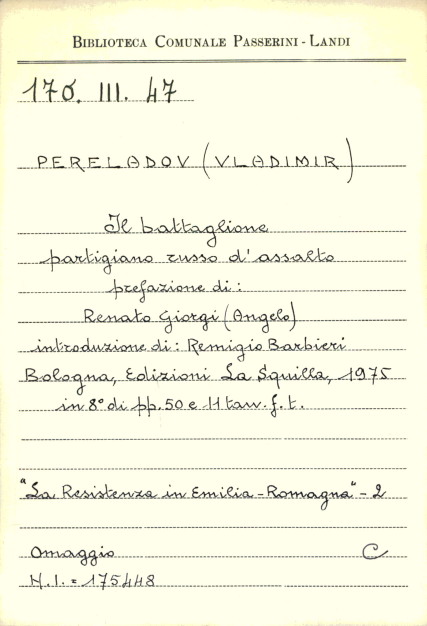 BIBLIOTECA COMUNALE PASSERINI - LANDI
170. III. 47
PERELADOV (VLADIMIR)
Il battaglione
partigiano russo d'assalto
prefazione di:
Renato Giorgi (Angelo)
introduzione di: Remigio Barbieri
Bologna, Edizioni La Squilla, 1975
in 8° di pp. 50 e 11 tav. f. t.
"La Resistenza in Emilia-Romagna" - 2
Omaggio C
N.I. = 175448